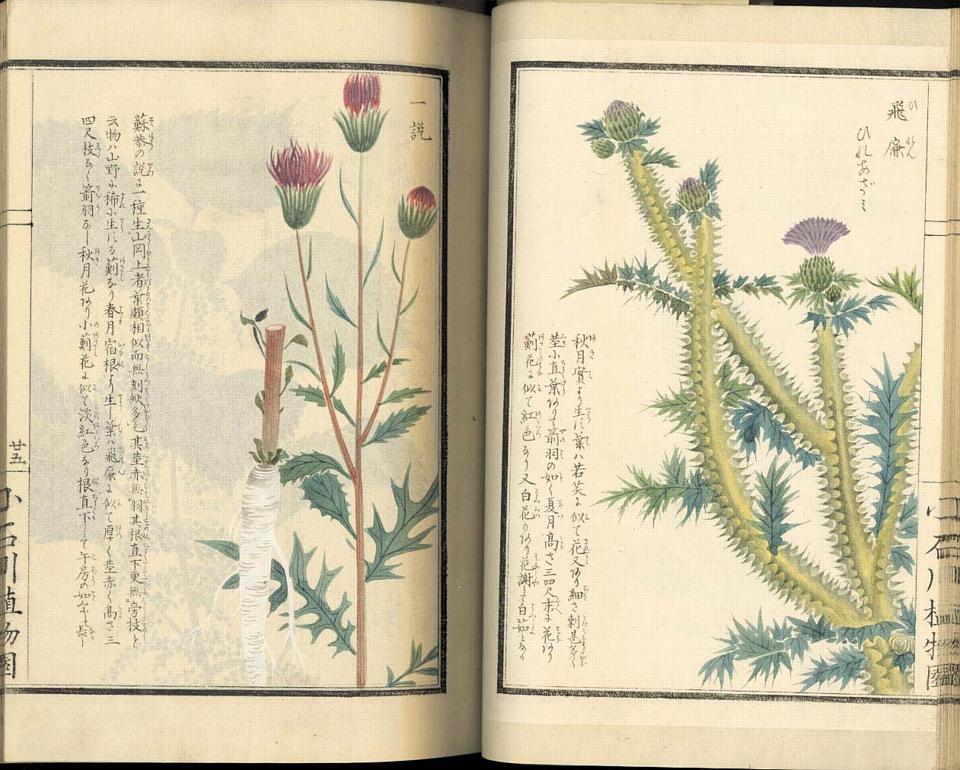 飛廉
ひれん
ひれあざミ
秋月實より生ズ葉ハ若芙に似て花又あり細き刺甚多く
茎小直葉ありて箭羽の如く夏月高さ三四尺末に花あり
薊花に似て紅色なり又白花のりあり花謝して白茹となる
一説
蘇恭の説に一種生山岡上者葉頗相似而無刻缺多毛其茎赤無羽其根直下更無旁枝と
云物ハ山野に稀小生ズる薊なり春月宿根より生ず葉ハ飛廉に似て厚く茎赤く高さ三
四尺枝多く箭羽なし秋月花あり小薊花に似て淡紅色なり根直下して午房の如くして長し
廿五
小石川植物園
小石川植物園